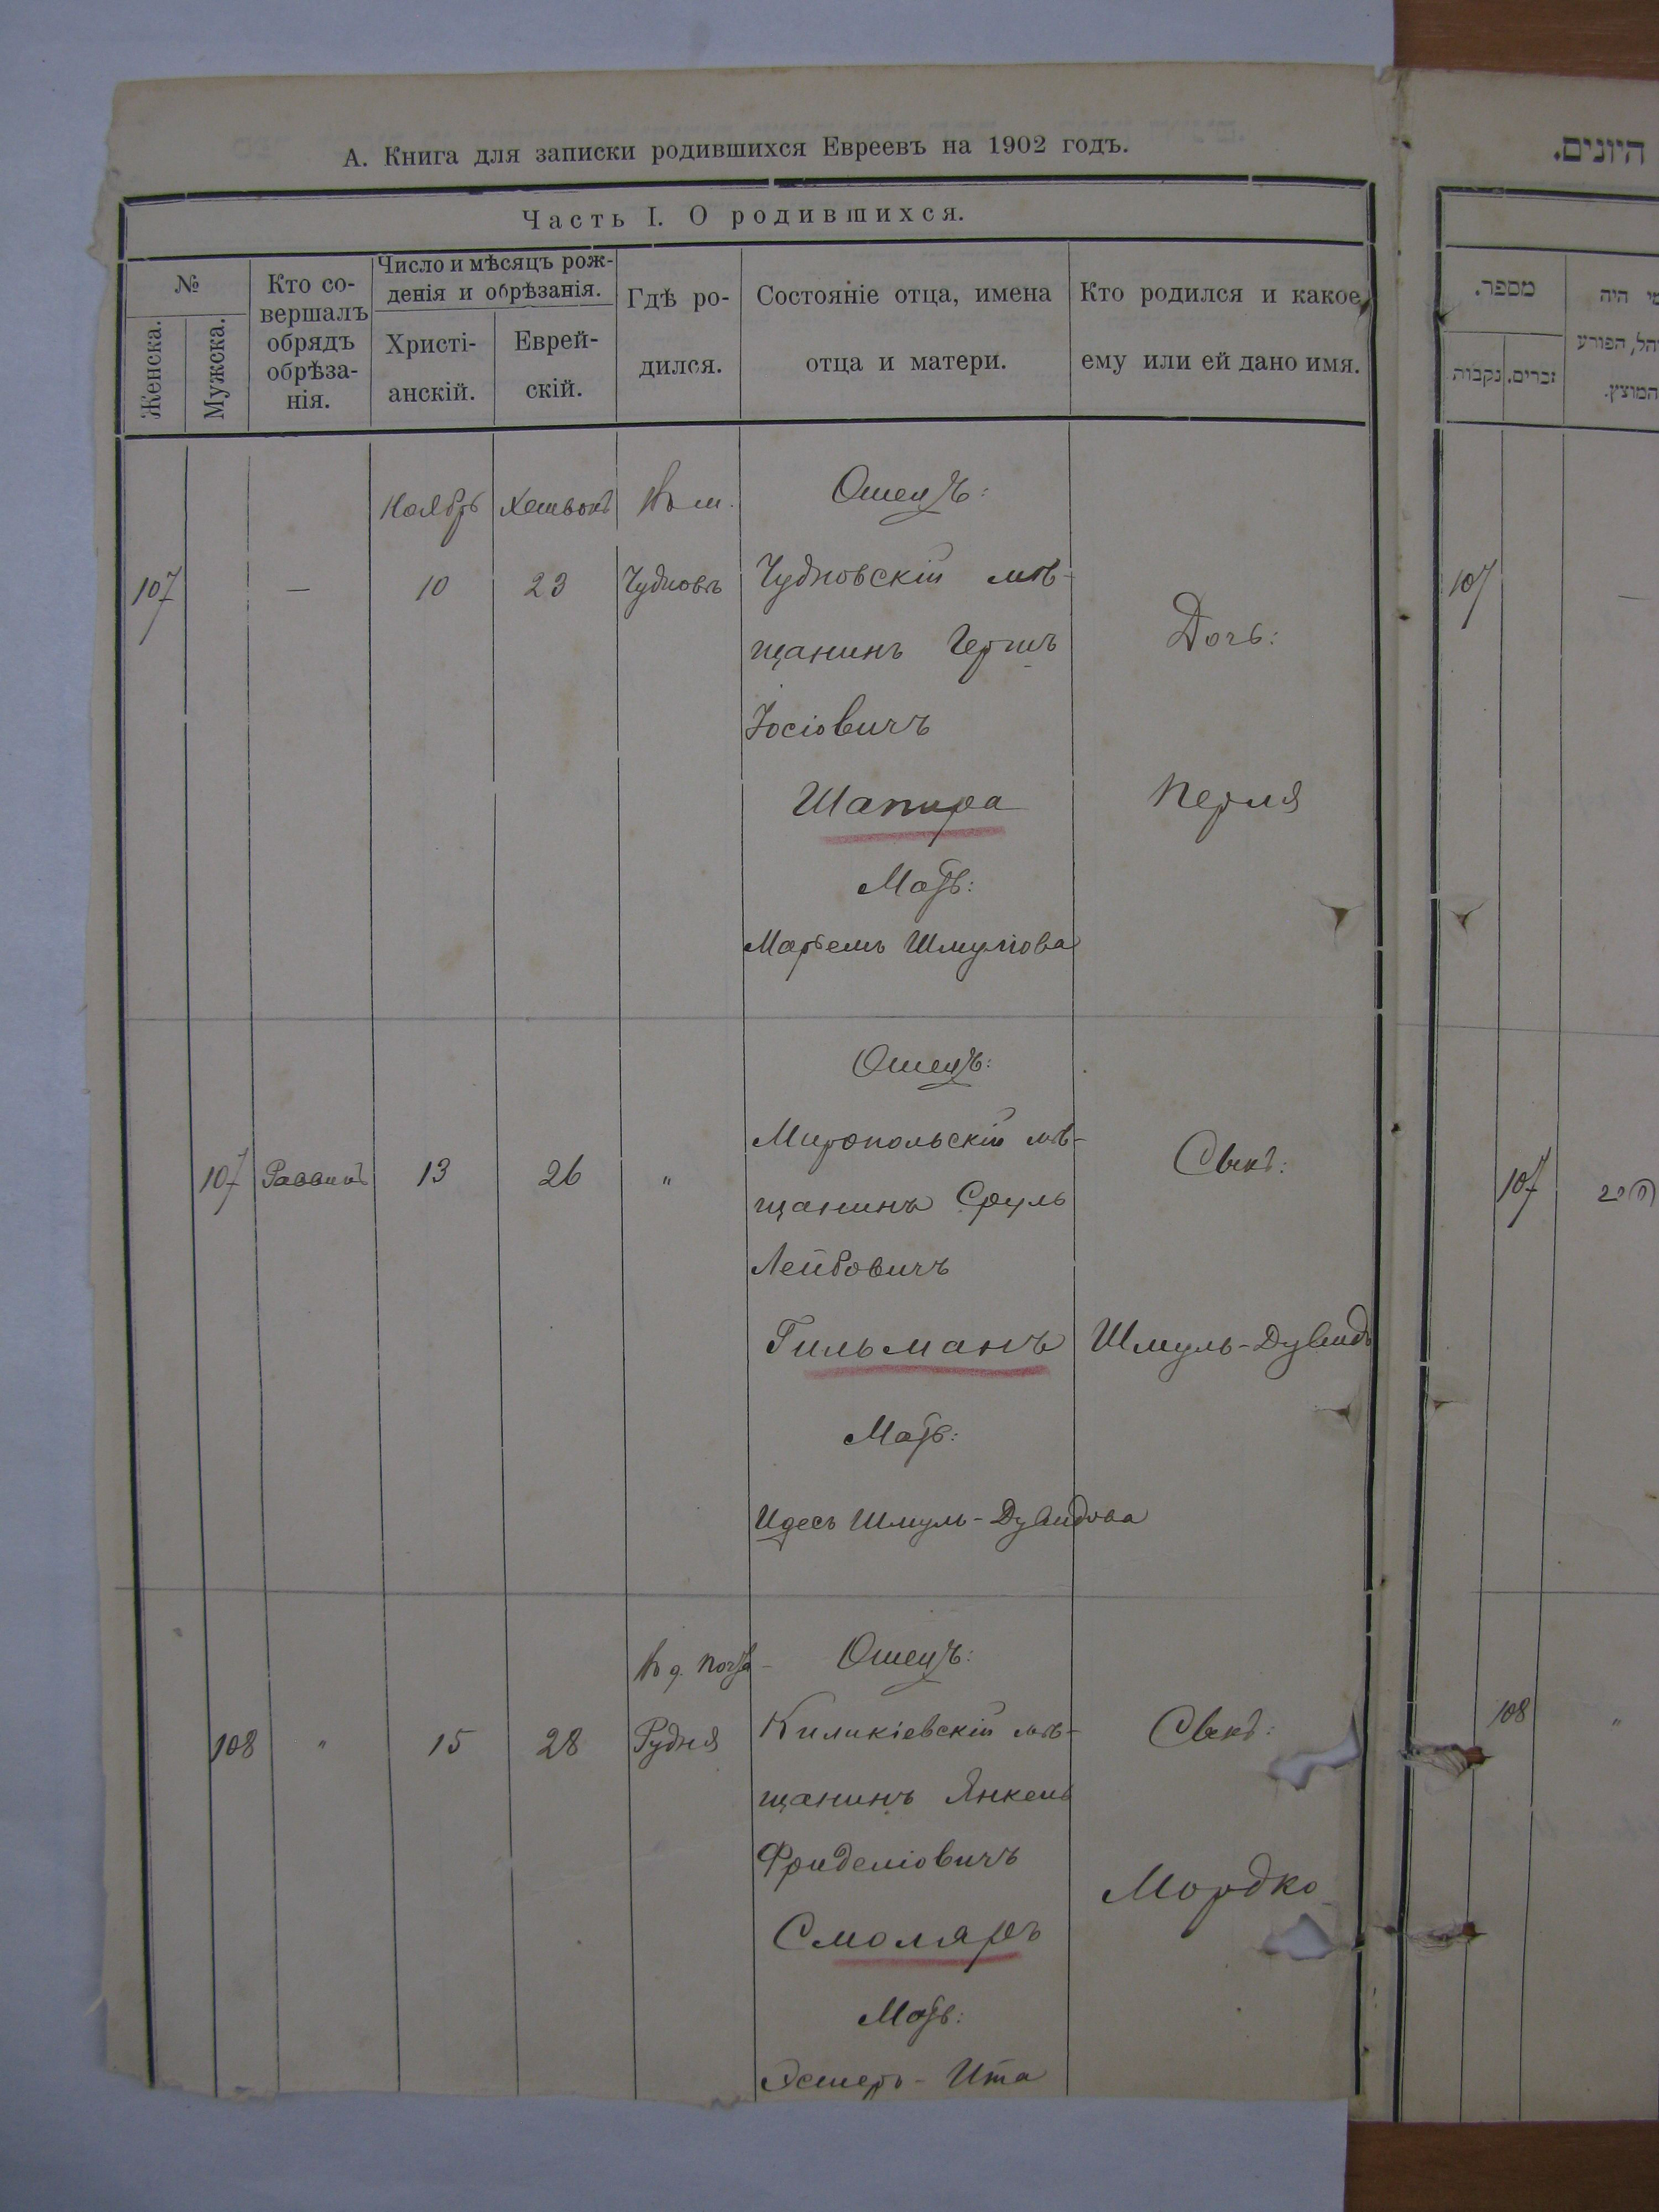 А. Книга для записки родившихся Евреевъ на 1902 годъ.
Часть I. О родившихся.
№
Женска.
Мужска.
Кто со-
вершалъ
обрядъ
обрѣза-
нія.
Число и мѣсяцъ рож-
денія и обрѣзанія.
Христі-
анскій.
Еврей-
скій.
Гдѣ ро-
дился.
Состояніе отца, имена
отца и матери.
Кто родился и какое
ему или ей дано имя.
Ноябрь
Въ м.
Отецъ:
107
—
10
23
Чудновъ
Чудновскій мѣ-
щанинъ Гершъ
Іосіовичъ
Шапира
Мать:
Марьемъ Шмулiова
Дочь:
Перля
107
Раввинъ
13
26
"
Отецъ:
Миропольскій мѣ-
щанинъ Сруль
Лейбовичъ
Гильманъ
Мать:
Идесъ Шмуль-Дувидова
Сынъ:
Шмуль-Дувидъ
108
"
15
28
Въ д.
Рудня
Отецъ:
Киликіевскій мѣ-
щанинъ Янкель
Фриделіовичъ
Смоляръ
Мать:
Эстеръ-Ита
Сынъ:
Мордко
היונים.
מספר.
נקבות
זכרים.
מי היה
המוצץ.
107
—
107
108
"